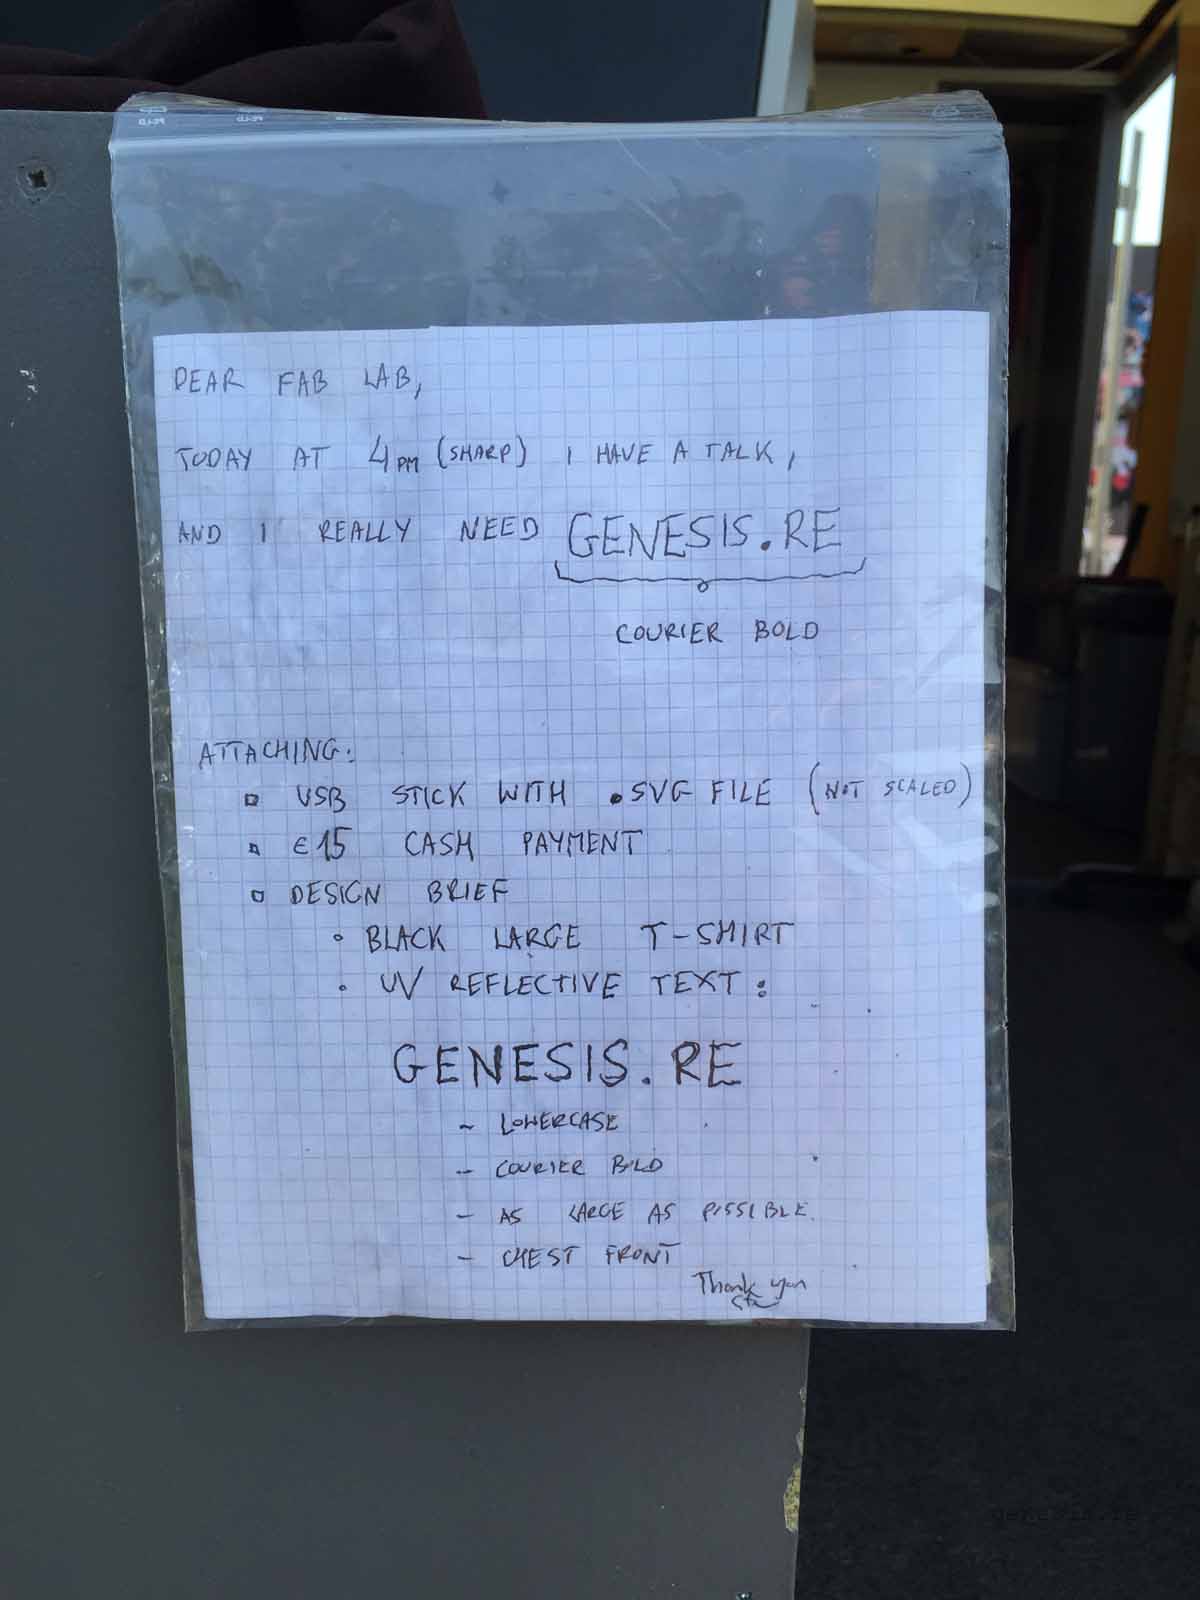 DEAR FAB LAB,
TODAY AT 4PM (SHARP) I HAVE A TALK,
AND I REALLY NEED GENESIS.RE
COURIER BOLD
ATTACHING:
USB STICK WITH .SVG FILE (NOT SCALED)
€15 CASH PAYMENT
DESIGN BRIEF
BLACK LARGE T-SHIRT
UV REFLECTIVE TEXT:
GENESIS.RE
- LOWERCASE
- COURIER BOLD
- AS LARGE AS POSSIBLE.
- CHEST FRONT
Thank you
genesis.re